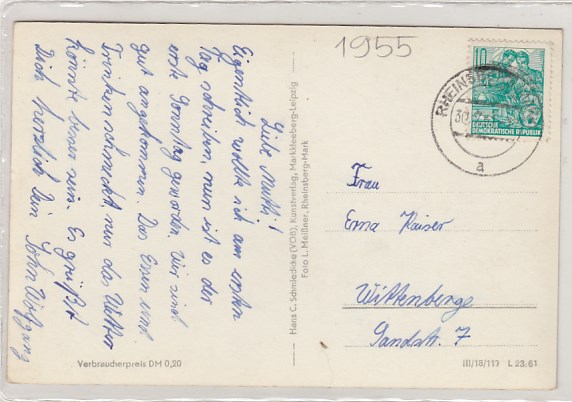 Liebe Mutti!
Eigentlich wollte ich am ersten
Tag schreiben, nun ist es der
erste Sonntag geworden. Wir sind
gut angekommen. Das Essen und
Trinken schmeckt, nur das Wetter
könnte besser sein. Es grüßt
Dich herzlich Dein Sohn Wolfgang
Verbraucherpreis DM 0,20
Hans C. Schmiedicke (VOB), Kunstverlag, Markkleeberg-Leipzig
Foto L. Meißner, Rheinsberg-Mark
1955
10
DEUTSCHE
DEMOKRATISCHE REPUBLIK
a
Frau
Erna Kaiser
Wittenberge
Sandstr. 7
III/18/117 L 23.61